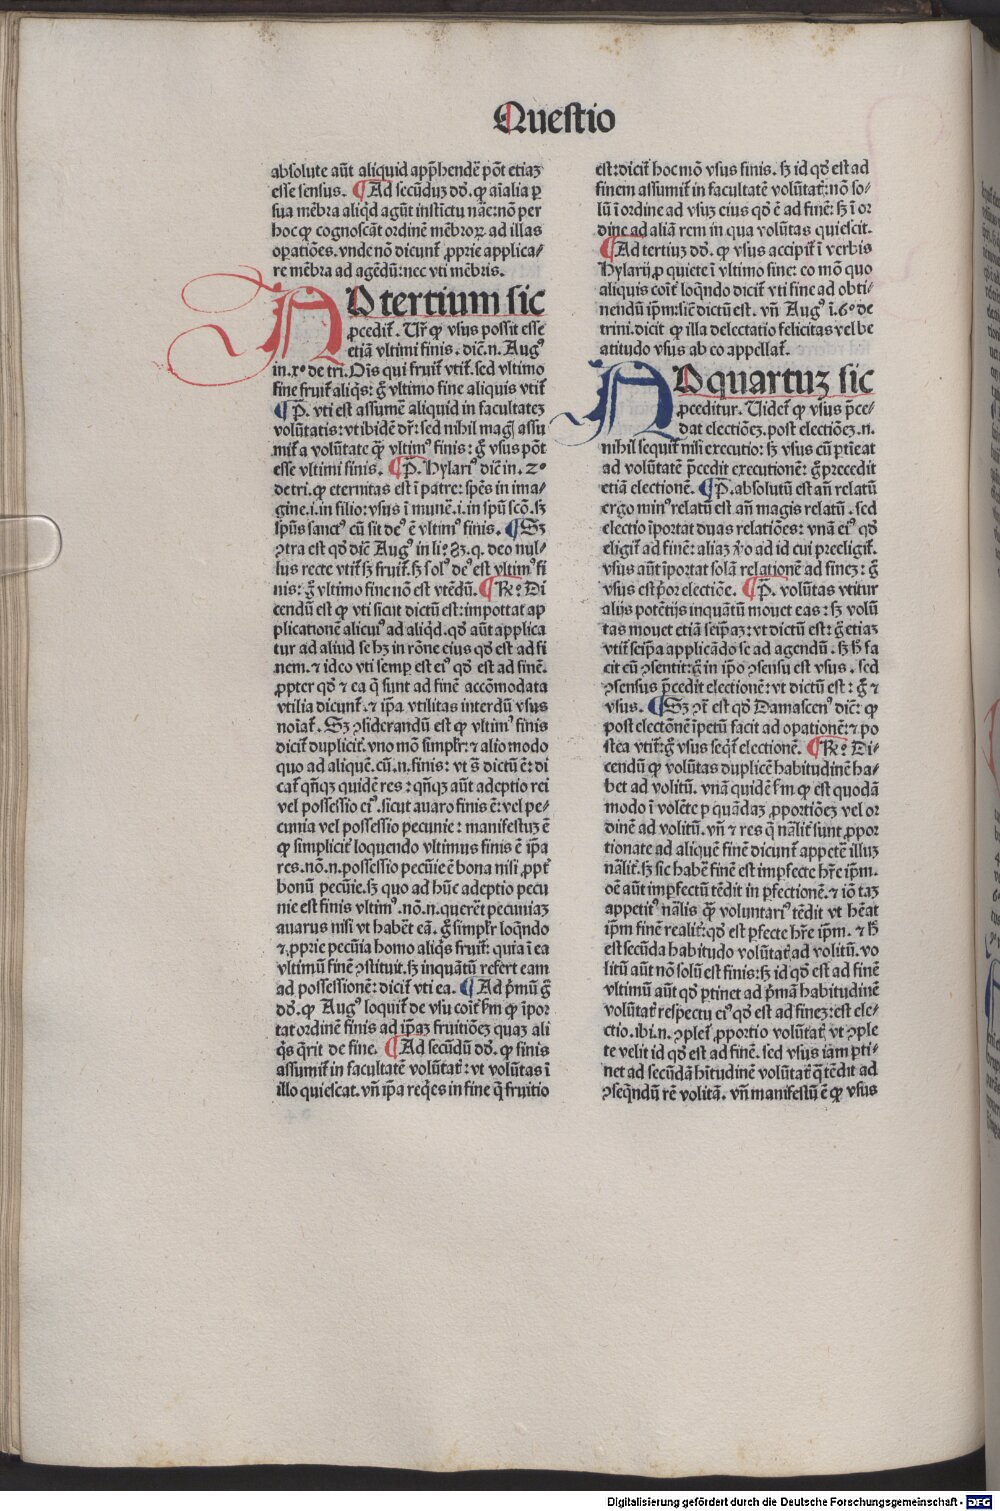 Questio
absolute aūt aliquid app̄hendē pōt etiaꝫ
esse sensus. ¶ Ad secūduꝫ dō. ꝙ aīalia ꝑ
sua mēbra aliq̇d agūt instīctu nāe: nō per
hoc ꝙ cognoscāt ordinē mēbroꝝ ad illas
oꝑatiōes. vnde nō dicunt̄ ꝓprie applica⸗
re mēbra ad agēdū: nec vti mēbris.
AD tertium sic
ꝓcedit̄. Ur̄ ꝙ vsus possit esse
etiā vltimi finis. diē.n. Augꝰ
in.xͦ de tri. Oīs qui fruit̄ vtit̄. sed vltimo
fine fruit̄ aliq̇s: g̊ vltimo fine aliquis vtit̄
¶ P̄. vti est assumē aliquid in facultateꝫ
volūtatis: vt ibidē dr̄: sed nihil mag̣ assu
mit̄ a volūtate q̄ȝ vltimꝰ finis: g̊ vsus pōt
esse vltimi finis. ¶ P̄. Hylariꝰ diē in. 2ͦ
de tri. ꝙ eternitas est ī patre: spēs in ima⸗
gine.i. in filio: vsus ī munē.i. in spū scō. sꝫ
spūs sanctꝰ cū sit deꝰ ē vltimꝰ finis. ¶ Sꝫ
ꝯtra est qd̛ diē Augꝰ in li.ͦ 83.q. deo nul⸗
lus recte vtit̄ sꝫ fruit̄. sꝫ solꝰ deꝰ est vltimꝰ fi
nis: g̊ vltimo fine nō est vtēdū. ¶ Rͦ. Di
cendū est ꝙ vti sicut dictū est: impottat ap
plicationē alicuiꝰ ad aliq̇d. qd̛ aūt applica
tur ad aliud se hꝫ in rōne eius qd̛ est ad fi
nem. ⁊ ideo vti semꝑ est eiꝰ qd̛ est ad finē.
ꝓpter qd̛ ⁊ ea q̄ sunt ad finē accōmodata
vtilia dicunt̄. ⁊ ip̄a vtilitas interdū vsus
noīat̄. Sꝫ ꝯsiderandū est ꝙ vltimꝰ finis
dicit̄ duplicit̄. vno mō simpl̄r: ⁊ alio modo
quo ad aliquē. cū.n. finis: vt s̄ dictū ē: di
cat̄ qn̄qꝫ quidē res: qn̄qꝫ aūt adeptio rei
vel possessio eiꝰ. sicut auaro finis ē: vel pe⸗
cunia vel possessio pecunie: manifestuꝫ ē
ꝙ simplicit̄ loquendo vltimus finis ē ip̄a
res. nō.n. possessio pecūie ē bona nisi ꝓpt̄
bonū pecūie. sꝫ quo ad hūc adeptio pecu
nie est finis vltimꝰ. nō.n. querēt pecuniaꝫ
auarus nisi vt habēt eā. g̊ simpl̄r loq̄ndo
⁊ ꝓprie pecūia homo aliq̇s fruit̄: quia ī ea
vltimū finē ꝯstituit. sꝫ inquātū refert eam
ad possessionē: dicit̄ vti ea. ¶ Ad p̄mū g̊
dō. ꝙ Augꝰ loquit̄ de vsu coīt̄ ẜm ꝙ īpor
tat ordinē finis ad ip̄aꝫ fruitiōeꝫ quaꝫ ali
q̇s q̄rit de fine. ¶ Ad secūdū dō. ꝙ finis
assumit̄ in facultatē volūtat̄: vt volūtas ī
illo quiescat. vn̄ ip̄a req̇es in fine q̄ fruitio
est: dicit̄ hoc mō vsus finis. sꝫ id qd̛ est ad
finem assumit̄ in facultatē volūtat̄: nō so⸗
lū ī ordine ad vsuꝫ eius qd̛ ē ad finē: sꝫ ī or
dine ad aliā rem in qua volūtas quiescit.
¶ Ad tertiuꝫ dō. ꝙ vsus accipit̄ ī verbis
Hylarij ꝓ quiete ī vltimo fine: eo mō quo
aliquis coīt̄ loq̄ndo dicit̄ vti fine ad obti⸗
nendū ip̄m: sicut dictū est. vn̄ Augꝰ ī.6ͦ de
trini. dicit ꝙ illa delectatio felicitas vel be
atitudo vsus ab eo appellat̄.
AD quartuꝫ sic
ꝓceditur. Uidet̄ ꝙ vsus p̄ce⸗
dat electiōeꝫ. post electiōeꝫ.n.
nihil sequit̄ nisi executio: sꝫ vsus cū ꝑtieat
ad volūtatē p̄cedit executionē: g̊ precedit
etiā electionē. ¶ P̄. absolutū est an̄ relatū
ergo minꝰ relatū est an̄ magis relatū. sed
electio īportat duas relatiōes: vnā eiꝰ qd̛
eligit̄ ad finē: aliaꝫ v̊o ad id cui preeligit̄.
vsus aūt īportat solā relationē ad fineꝫ: g̊
vsus est p̄or electiōe. ¶ P̄. volūtas vtitur
alijs potētijs inquātū mouet eas: sꝫ volū
tas mouet etiā seip̄aꝫ: vt dictū est: g̊ etiaꝫ
vtit̄ seip̄a applicādo se ad agendū. sꝫ h̄ fa
cit cū ꝯsentit: g̊ in ip̄o ꝯsensu est vsus. sed
ꝯsensus p̄cedit electionē: vt dictū est: g̊ ⁊
vsus. ¶ Sꝫ ꝯͣ est qd̛ Damascenꝰ diē: ꝙ
post electōnē īpetū facit ad oꝑationē: ⁊ po
stea vtit̄: g̊ vsus seq̇t̄ electionē. ¶ Rͦ. Di⸗
cendū ꝙ volūtas duplicē habitudinē ha⸗
bet ad volitū. vnā quidē ẜm ꝙ est quodā
modo ī volēte ꝑ quādaꝫ ꝓportiōeꝫ vel or
dinē ad volitū. vn̄ ⁊ res q̄ nāl̄it̄ sunt ꝓpor
tionate ad aliquē finē dicunt̄ appetē illuꝫ
nāl̄it̄. sꝫ sic habē finē est imꝑfecte hr̄e ip̄m.
oē aūt imꝑfectū tēdit in ꝑfectionē. ⁊ iō taꝫ
appetitꝰ nālis q̄ȝ voluntariꝰ tēdit vt hēat
ip̄m finē realit̄: qd̛ est ꝑfecte hr̄e ip̄m. ⁊ h̄
est secūda habitudo volūtat̄ ad volitū. vo
litū aūt nō solū est finis: sꝫ id qd̛ est ad finē
vltimū aūt qd̛ ꝑtinet ad p̄mā habitudinē
volūtat̄ respectu eiꝰ qd̛ est ad fineꝫ: est ele⸗
ctio. ibi.n. ꝯplet̄ ꝓportio volūtat̄ vt ꝯple
te velit id qd̛ est ad finē. sed vsus iam ꝑti⸗
net ad secūdā hītudinē volūtat̄ q̄ tēdit ad
ꝯseq̄ndū rē volitā. vn̄ manifestū ē ꝙ vsus
Digitalisierung gefördert durch die Deutsche Forschungsgemeinschaft - DFG